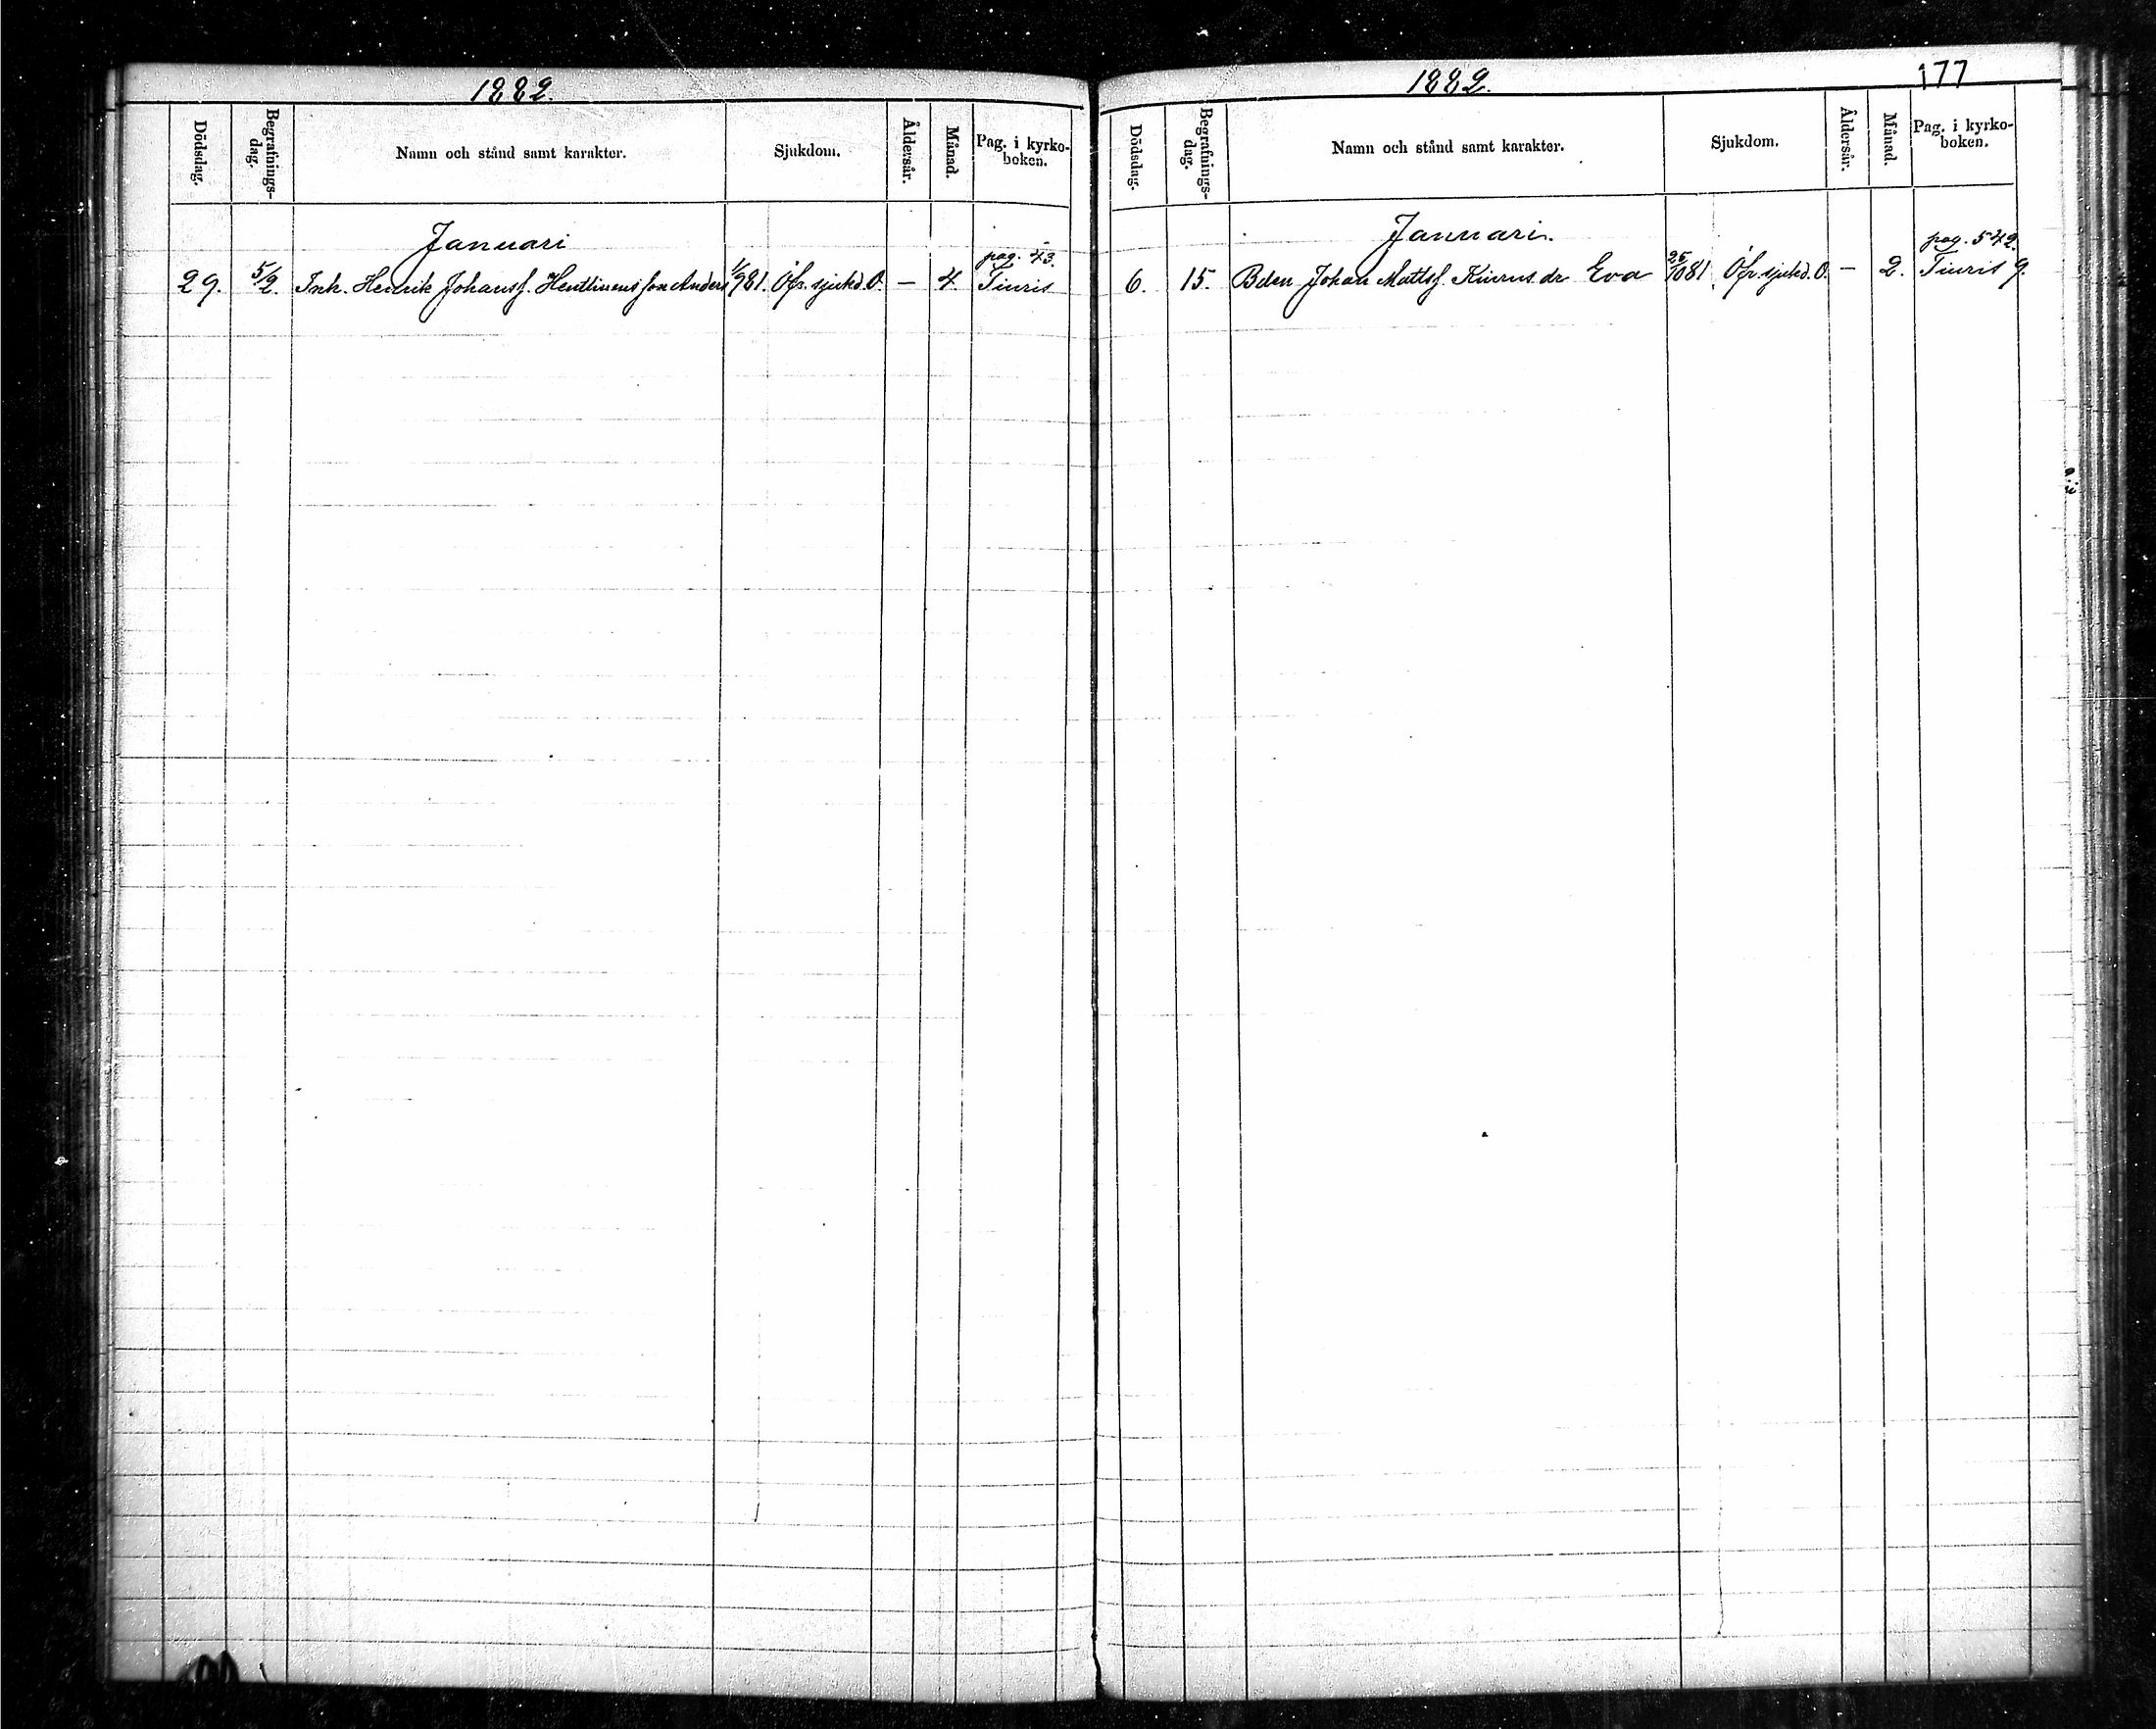 1882.
Dödsdag. Begrafnings-dag. Namn och stånd samt karakter. Sjukdom. Åldersår. Månad. Pag. i kyrko-boken.
Januari
pag. 43.
29. 5/2. Inh. Henrik Johanss. Henttinens son Anders 1/9 81. Öfr. sjukd. O. — 4. Tiuris
1882. 177
Dödsdag. Begrafnings-dag. Namn och stånd samt karakter. Sjukdom. Åldersår. Månad. Pag. i kyrko-boken.
Januari.
pag. 542.
6. 15. Bden Johan Mattss. dr Eva 25/10 81 Öfr. sjukd. O. — 2. Tiuris 9.